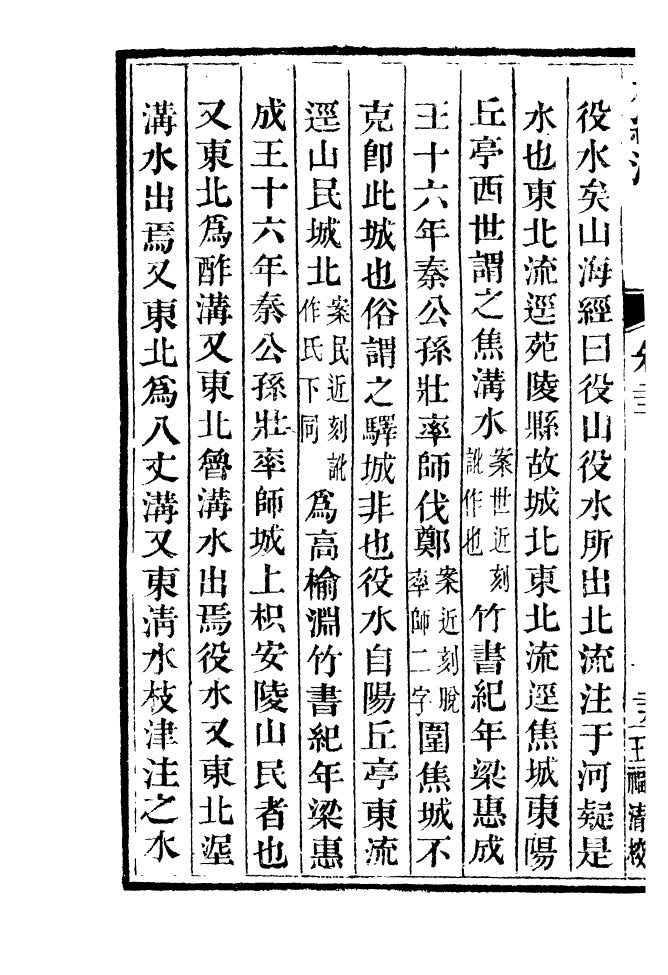 役水矣山海經曰役山役水所出北流注于河疑是
水也東北流逕苑陵縣故城北東北流逕焦城東陽
丘亭西世謂之焦溝水案世近刻訛作也竹書紀年梁惠成
王十六年秦公孫壯率師伐鄭案近刻脫率師二字圍焦城不
克卽此城也俗謂之驛城非也役水自陽丘亭東流
逕山民城北案民近刻訛作氏下同爲高榆淵竹書紀年梁惠
成王十六年秦公孫壯率師城上枳安陵山民者也
又東北爲酢溝又東北魯溝水出焉役水又東北埿
溝水出焉又東北爲八丈溝又東清水枝津注之水